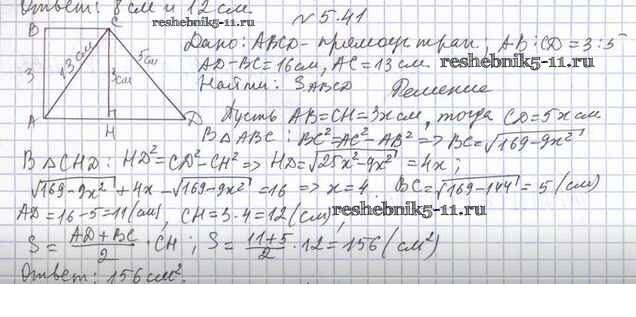 Ответ: 8 см и 12 см.
reshebnik5-11.ru
№ 5.41
B C
3 13 см 3 см 5 см
A H D
Дано: ABCD - прямоуг трап, AB:CD = 3:5
AD-BC=16см, AC=13 см reshebnik5-11.ru
Найти: S ABCD Решение
Пусть AB=CH=3x см, тогда CD=5x см
В △ABC: BC²=AC²-AB² => BC=√169-9x²
В △CHD: HD²=CD²-CH² => HD=√25x²-9x² = 4x;
√169-9x² + 4x - √169-9x² =16 => x=4. BC=√169-144 = 5 (см)
AD=16-5=11(см), CH=3·4=12(см), reshebnik5-11.ru
S = (AD+BC)/2 · CH; S = (11+5)/2 · 12=156 (см²)
Ответ: 156 см².